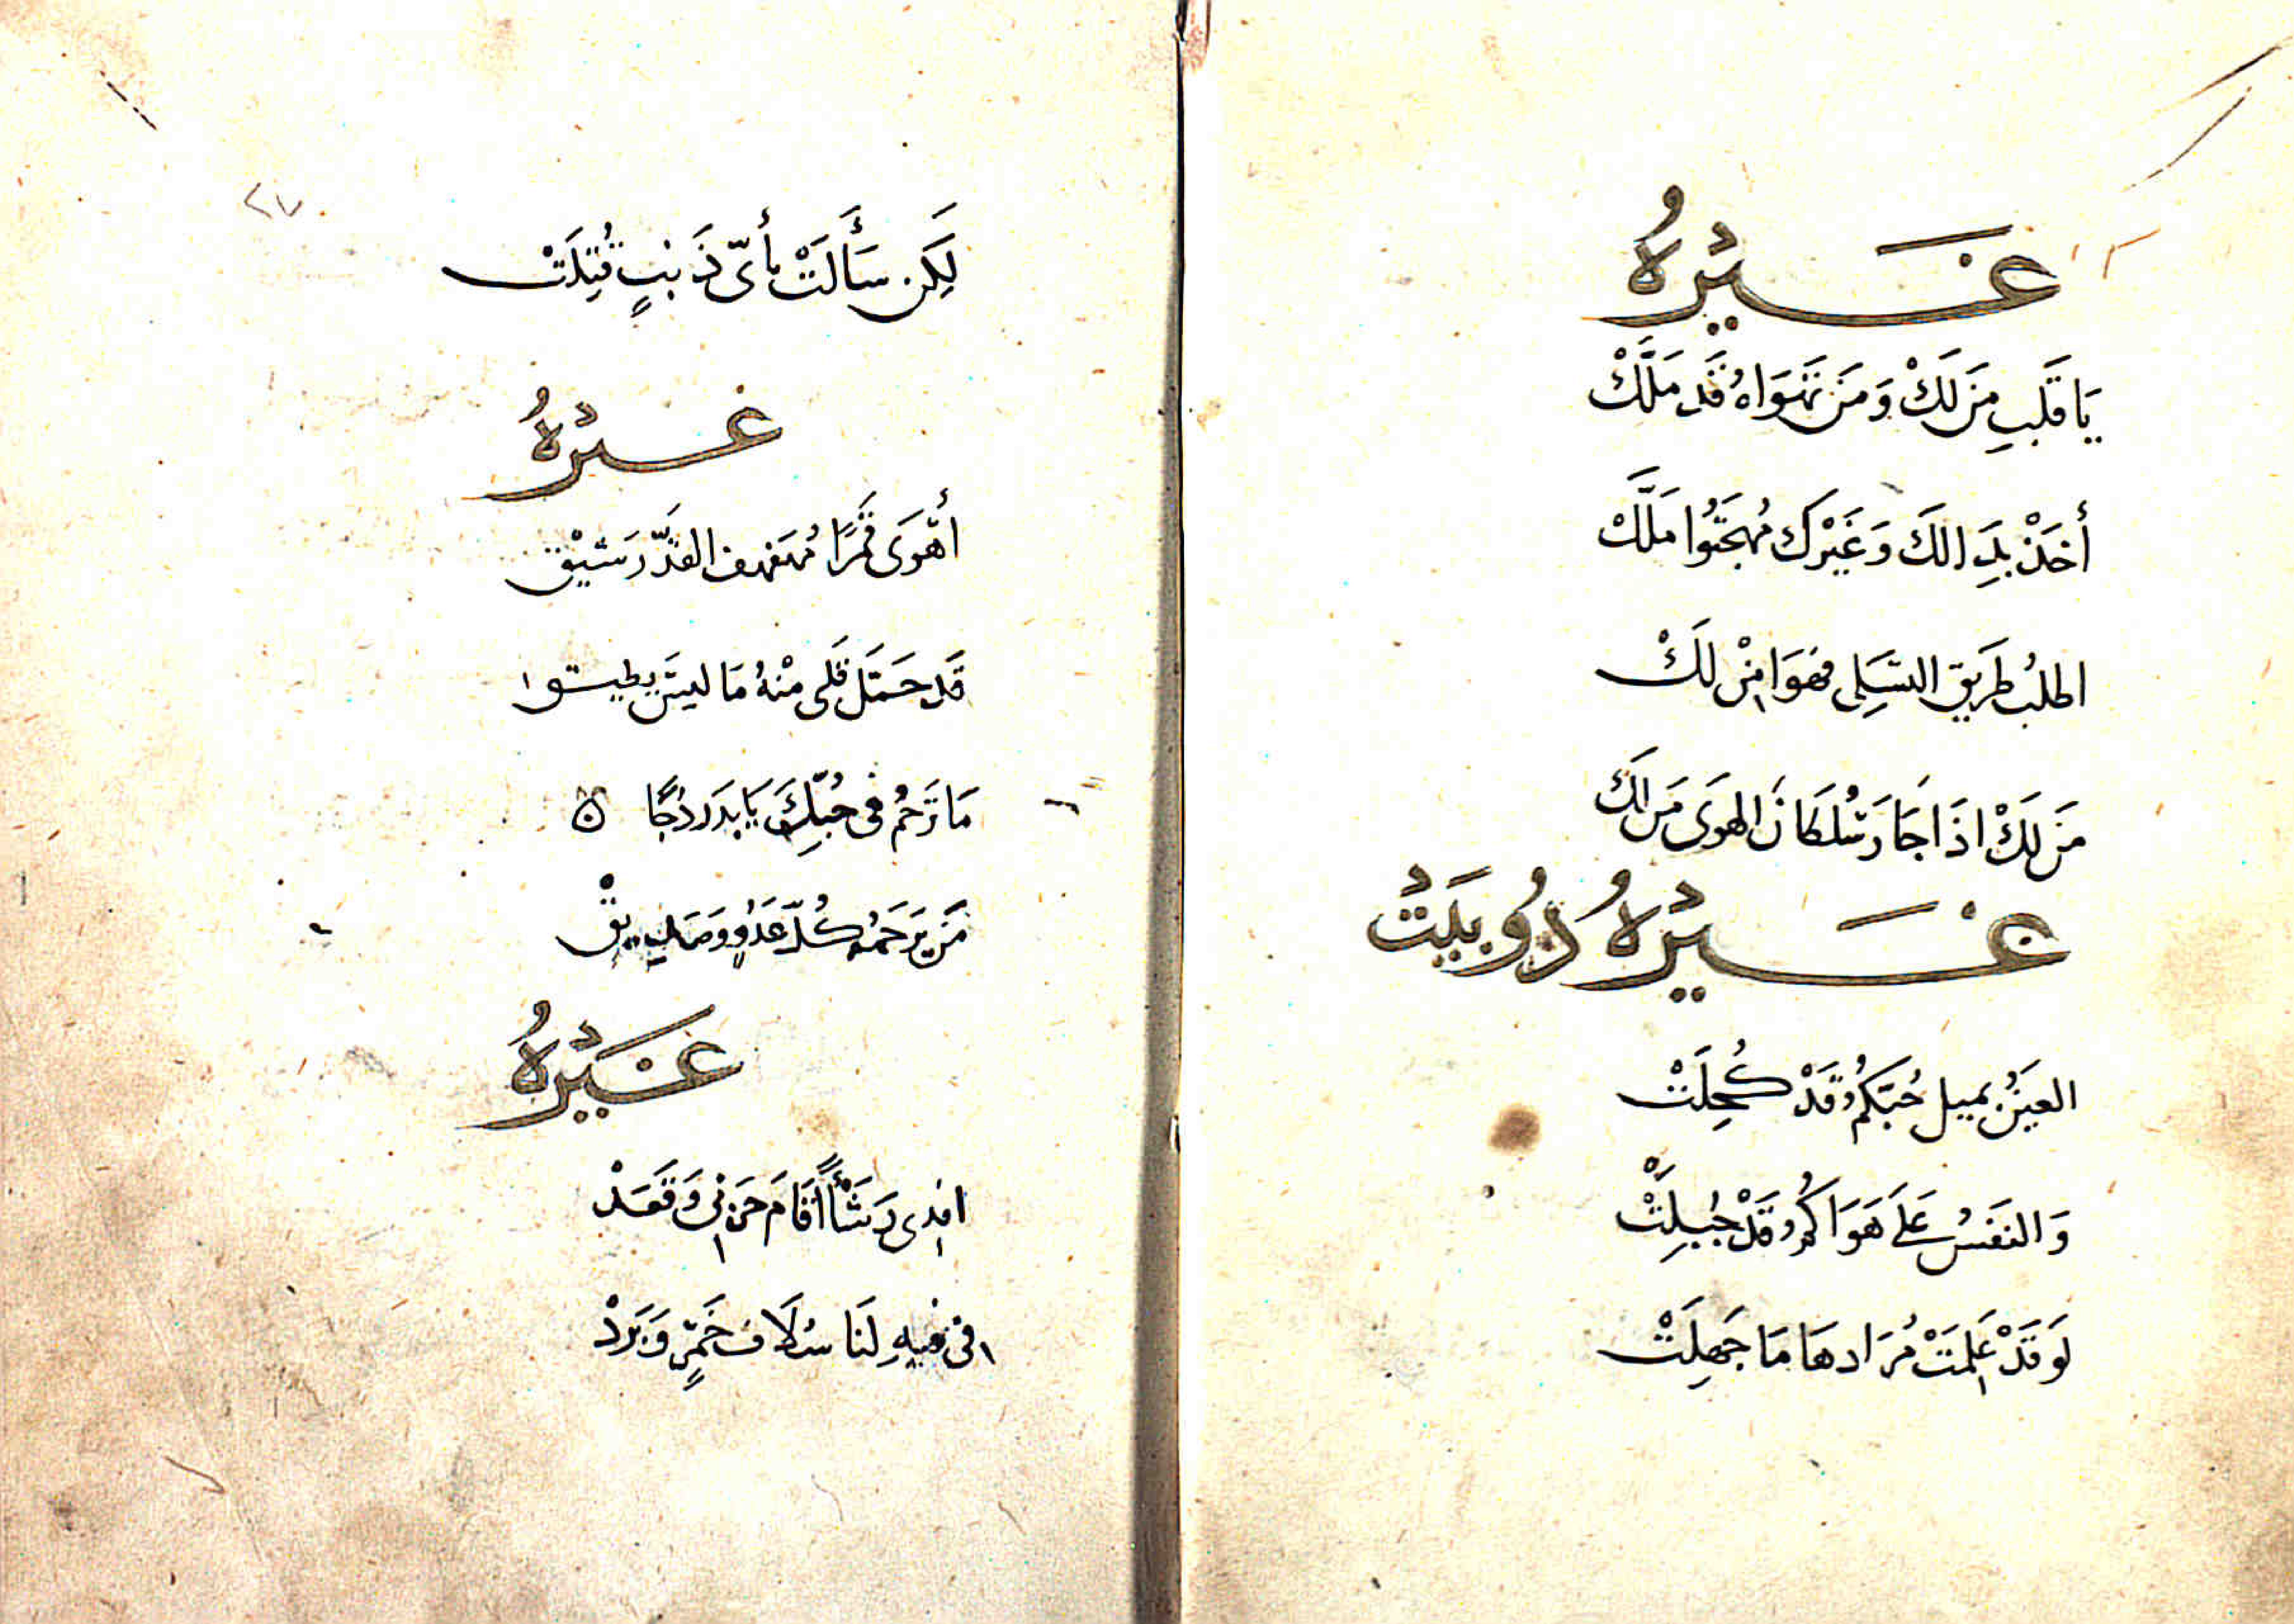 غَيْرُهُ
يَا قَلْبِ مَنْ لَكْ وَمَنْ تَهْوَاهُ قَد مَلَّكْ
أخَذْ بدَالَكَ وَغَيْرَك مُهجَتُوا مَلَّكْ
اطلبْ طَرِيق التسَلِى فهوَا مِنْ لَكْ
مَن لَكْ اذَا جَارَ سُلطَانَ الهوَى مَن لَكْ
غَيْرُهُ دُو بَيتْ
العَينُ بميل حُبّكمُ قَدْ كُحِلَتْ
وَالنفَسُ عَلَى هَوَاكُمُ قَدْ جُبِلَتْ
لَوْ قَدْ عَلِمَتْ مُرَادهَا مَا جَهِلَتْ
٢٧
لَكِن سَأَلَتْ بأىّ ذَنبٍ قُتِلَتْ
غيْرهُ
أهْوَى قمَرًا مُهَفهف القدّ رَشيْق
قَد حَمَّلَ قلبى مْنهُ مَا ليسَ يطيقوا
مَا تَرْحمُ فى حُبّكَ يَا بدَر دُجًا ٥
مَن يَرَحَمُه كُلّ عَدُوٍ وَصَدِيقْ
غَيْرهُ
افدِى رَشَأً أقَامَ حزنى وَقَعَدْ
فى فيهِ لَنَا سُلَاف خَمرٍ وَبَرَدْ